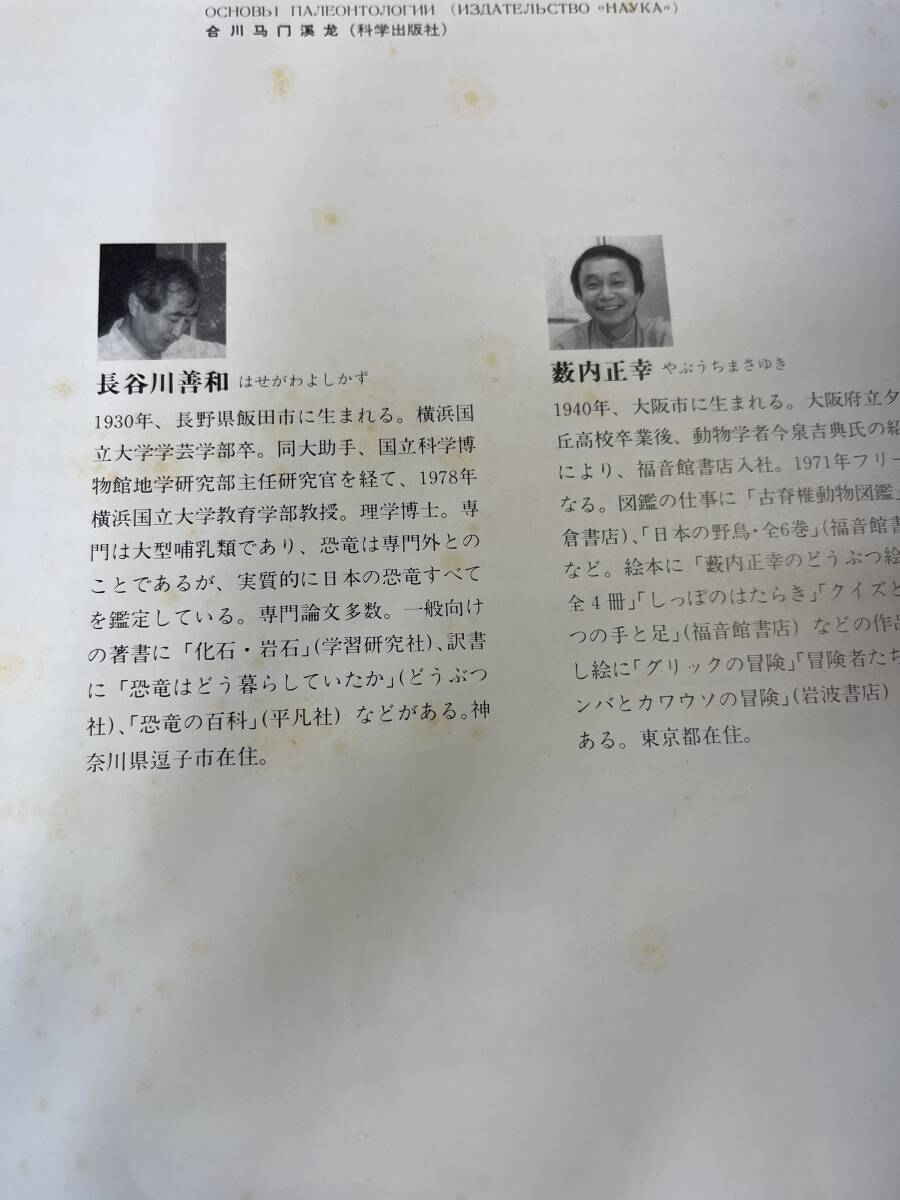 ОСНОВЫ ПАЛЕОНТОЛОГИИ (ИЗДАТЕЛЬСТВО «НАУКА»)
合川马门溪龙(科学出版社)
長谷川善和 はせがわよしかず
1930年、長野県飯田市に生まれる。横浜国
立大学学芸学部卒。同大助手、国立科学博
物館地学研究部主任研究官を経て、1978年
横浜国立大学教育学部教授。理学博士。専
門は大型哺乳類であり、恐竜は専門外との
ことであるが、実質的に日本の恐竜すべて
を鑑定している。専門論文多数。一般向け
の著書に「化石・岩石」(学習研究社)、訳書
に「恐竜はどう暮らしていたか」(どうぶつ
社)、「恐竜の百科」(平凡社) などがある。神
奈川県逗子市在住。
薮内正幸 やぶうちまさゆき
1940年、大阪市に生まれる。大阪府立夕
丘高校卒業後、動物学者今泉吉典氏の紹
により、福音館書店入社。1971年フリー
なる。図鑑の仕事に「古脊椎動物図鑑」
倉書店)、「日本の野鳥・全6巻」(福音館書
など。絵本に「薮内正幸のどうぶつ絵
全4冊」「しっぽのはたらき」「クイズと
つの手と足」(福音館書店) などの作品
し絵に「グリックの冒険」「冒険者たち
ンバとカワウソの冒険」(岩波書店)
ある。東京都在住。